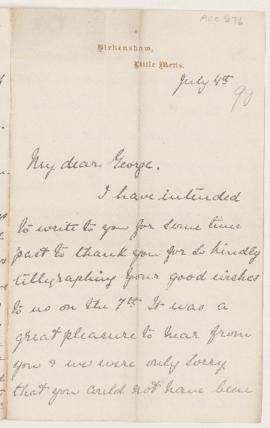 Acc 876
Birkenshaw,
Little Mertis.
July 4th
90
My dear George.
I have intended
to write to you for some time
past to thank you for so kindly
tellygraphing your good wishes
to us on the 7th It was a
great pleasure to hear from
you & we were only sorry
that you could not have been